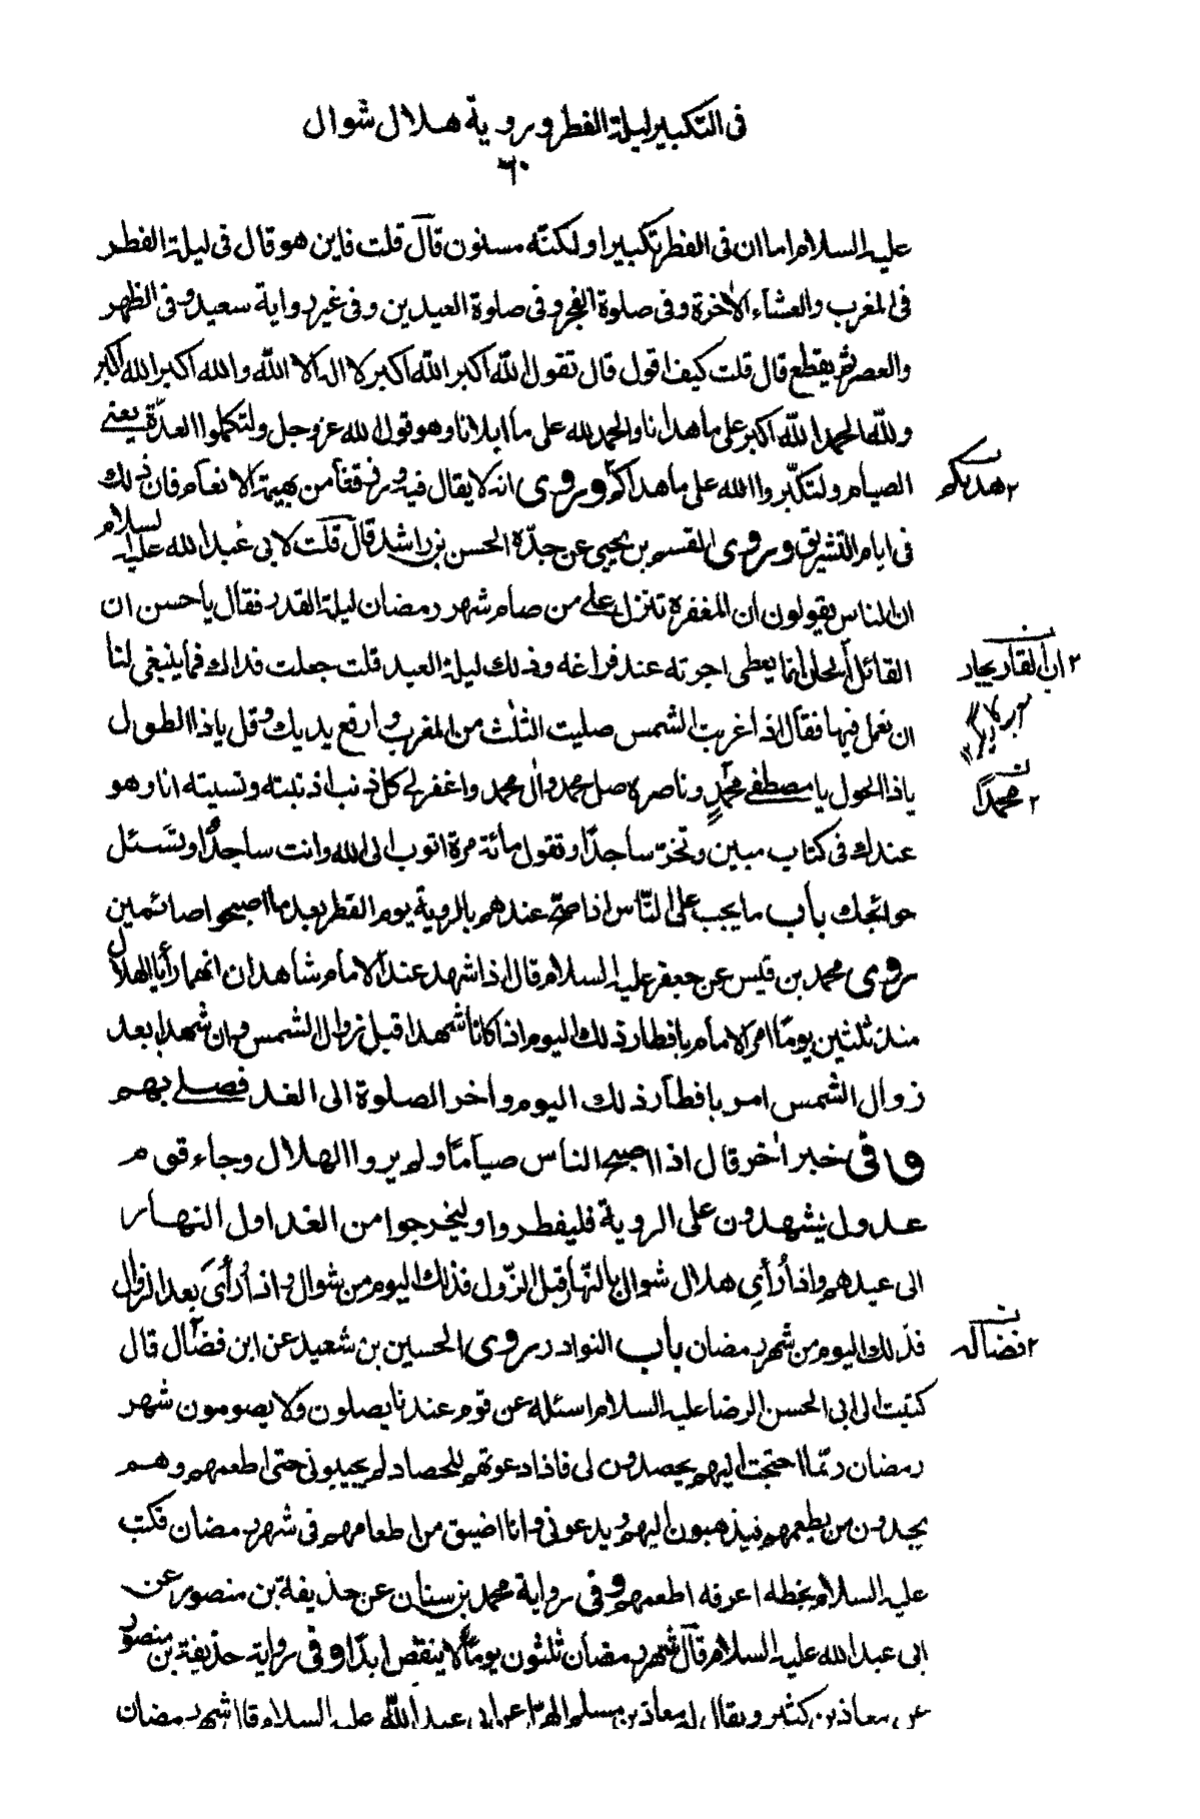 فى التكبير ليلة الفطر و روية هلال شوال
٦٠
عليه السلام اما ان فى الفطر تكبيرا ولكنّه مسنون قال قلت فاين هو قال فى ليلة الفطر
فى المغرب والعشاء الاخرة وفى صلوة الفجر وفى صلوة العيدين وفى غير رواية سعيد وفى الظهر
والعصر ثم يقطع قال قلت كيف اقول قال تقول اللّه اكبر اللّه اكبر لا اله الا اللّه والله اكبر الله اكبر
وللّه الحمد اللّه اكبر على ما هدانا والحمد لله على ما ابلانا وهو قول الله عز وجل ولتكملوا العدّة يعنى
الصيام ولتكبّروا الله على ما هداكم وروى انه لا يقال فيه ورزقنا من بهيمة الانعام فان ذلك
٢ هديكم
فى ايام التشريق وروى القسم بن يحيى عن جدّه الحسن بن راشد قال قلت لابى عبد الله عليه السلام
ان الناس يقولون ان المغفرة تنزل على من صام شهر رمضان ليلة القدر فقال يا حسن ان
القائل انما يعطى اجرته عند فراغه وذلك ليلة العيد قلت جعلت فداك فما ينبغى لنا
٢ ان القاريجار
ان نعمل فيها فقال اذا غربت الشمس صليت الثلث من المغرب و ارفع يديك وقل ياذا الطول
ياذا الحول يا مصطفى محمّدٍ وناصره صل محمد وال محمد واغفر لى كل ذنب اذنبته ونسيته انا وهو
٢ محمداً
عندك فى كتاب مبين وتخرّ ساجدًا وتقول مائة مرة اتوب الى الله وانت ساجدًا وتسئل
حوائجك باب ما يجب على النّاس اذا صحّ عندهم بالروية يوم الفطر بعد ما اصبحوا صائمين
روى محمد بن قيس عن جعفر عليه السلام قال اذا شهد عند الامام شاهدان انهما رأيا الهلال
منذ ثلثين يومًا امر الامام بافطار ذلك اليوم اذا كانا شهدا قبل زوال الشمس وان شهدا بعد
زوال الشمس امر بافطار ذلك اليوم و اخر الصلوة الى الغد فصلى بهم
و فى خبر اخر قال اذا اصبح الناس صيامًا ولم يروا الهلال وجاء قوم
عدول يشهدون على الروية فليفطروا وليخرجوا من الغد اول النهار
الى عيدهم واذا رأى هلال شوال بالنّهار قبل الزّول فذلك اليوم من شوال واذا رأى بعد الزوال
فذلك اليوم من شهر رمضان باب النوادر روى الحسين بن سعيد عن ابن فضال قال
٢ فضاله
كتبت الى ابى الحسن الرضا عليه السلام اسئله عن قوم عندنا يصلون ولا يصومون شهر
رمضان ربّما احتجت اليهم يحصدون لى فاذا دعوتهم للحصاد لم يجيبونى حتى اطعمهم وهم
يجدون من يطعمهم فيذهبون اليهم ويدعونى وانا اضيق من اطعامهم فى شهر رمضان فكتب
عليه السلام بخطه اعرفه اطعمهم و فى رواية محمد بن سنان عن حذيفة بن منصور عن
ابى عبد الله عليه السلام قال شهر رمضان ثلثون يومًا لا ينقص ابدًا و فى رواية حذيفة بن منصور
عن معاذ بن كثير ويقال له معاذ بن مسلم الهرّا عن ابى عبد اللّه عليه السلام قال شهر رمضان